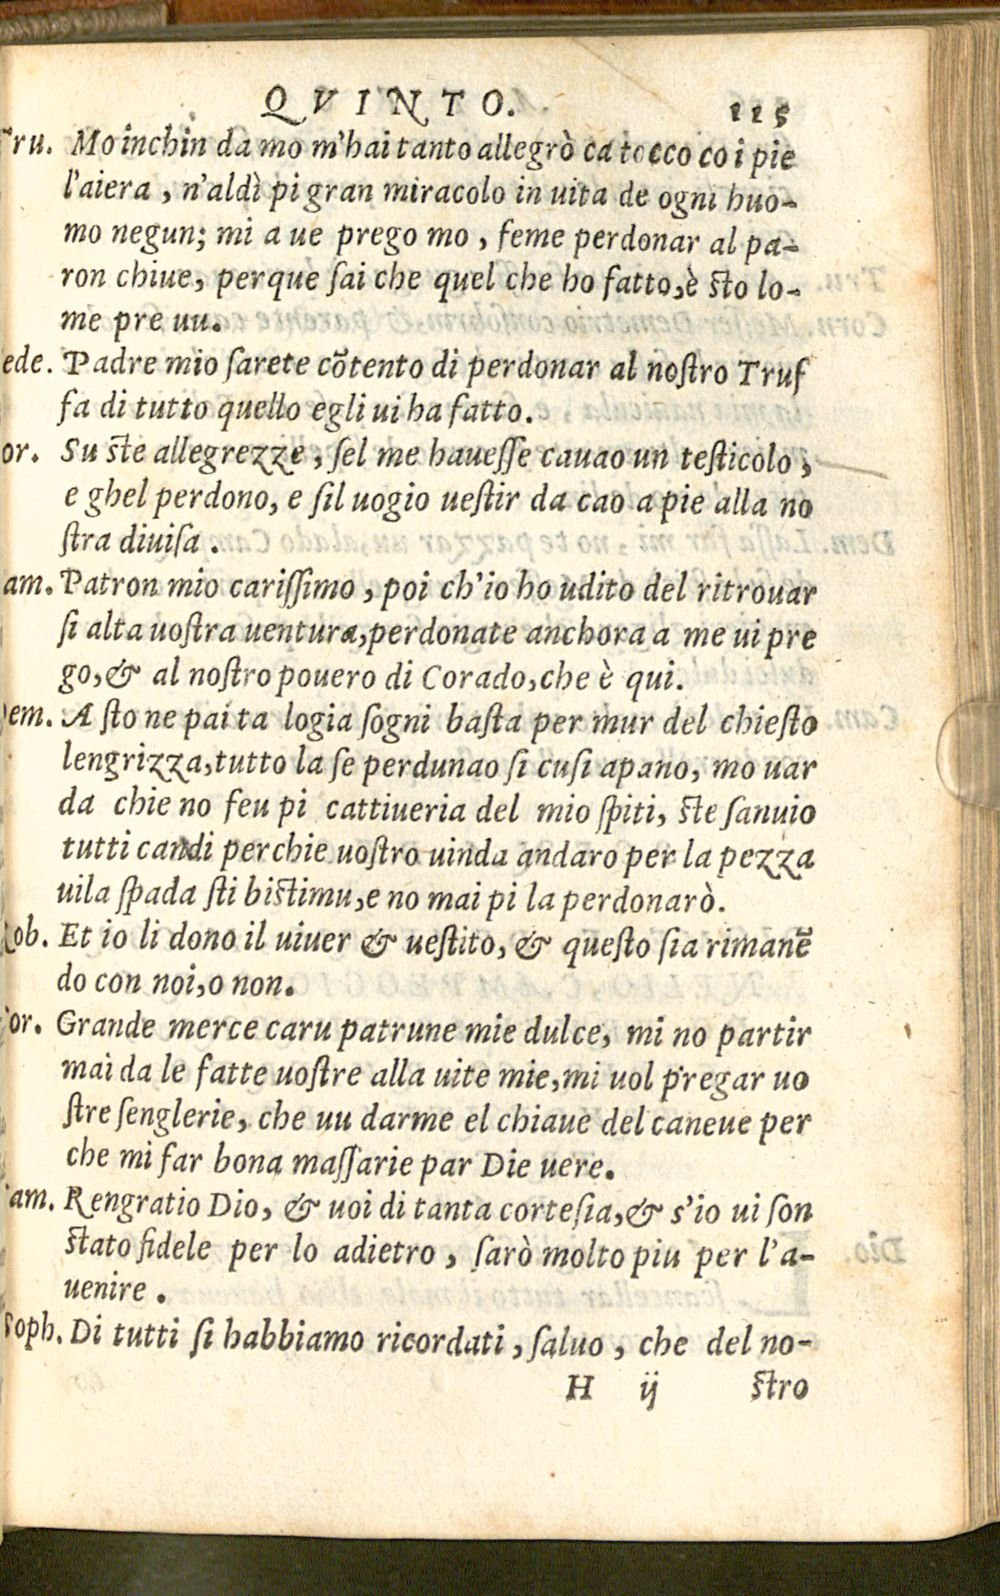 QVINTO. 115
Tru. Mo inchin da mo m'hai tanto allegrò ca tocco co i pie
l'aiera, n'aldì pi gran miracolo in uita de ogni huo-
mo negun; mi a ue prego mo, feme perdonar al pa-
ron chiue, perque ſai che quel che ho fatto, è ſto lo-
me pre uu.
ede. Padre mio ſarete cõtento di perdonar al noſtro Truf
fa di tutto quello egli ui ha fatto.
or. Su ſte allegrezze, ſel me haueſſe cauao un teſticolo,
e ghel perdono, e ſil uogio ueſtir da cao a pie alla no
ſtra diuiſa.
am. Patron mio cariſſimo, poi ch'io ho udito del ritrouar
ſi alta uoſtra uentura, perdonate anchora a me ui pre
go, & al noſtro pouero di Corado, che è qui.
Dem. A ſto ne pai ta logia ſogni baſta per mur del chieſto
lengrizza, tutto la ſe perdunao ſi cuſi apano, mo uar
da chie no feu pi cattiueria del mio ſpiti, ſte ſanuio
tutti candi perchie uoſtro uinda andaro per la pezza
uila ſpada ſti biſtimu, e no mai pi la perdonarò.
Rob. Et io li dono il uiuer & ueſtito, & queſto ſia rimanẽ
do con noi, o non.
Cor. Grande merce caru patrune mie dulce, mi no partir
mai da le fatte uoſtre alla uite mie, mi uol pregar uo
ſtre ſenglerie, che uu darme el chiaue del caneue per
che mi far bona maſſarie par Die uere.
Cam. Rengratio Dio, & uoi di tanta corteſia, & s'io ui ſon
ſtato fidele per lo adietro, ſarò molto piu per l'a-
uenire.
Soph. Di tutti ſi habbiamo ricordati, ſaluo, che del no-
H ij ſtro